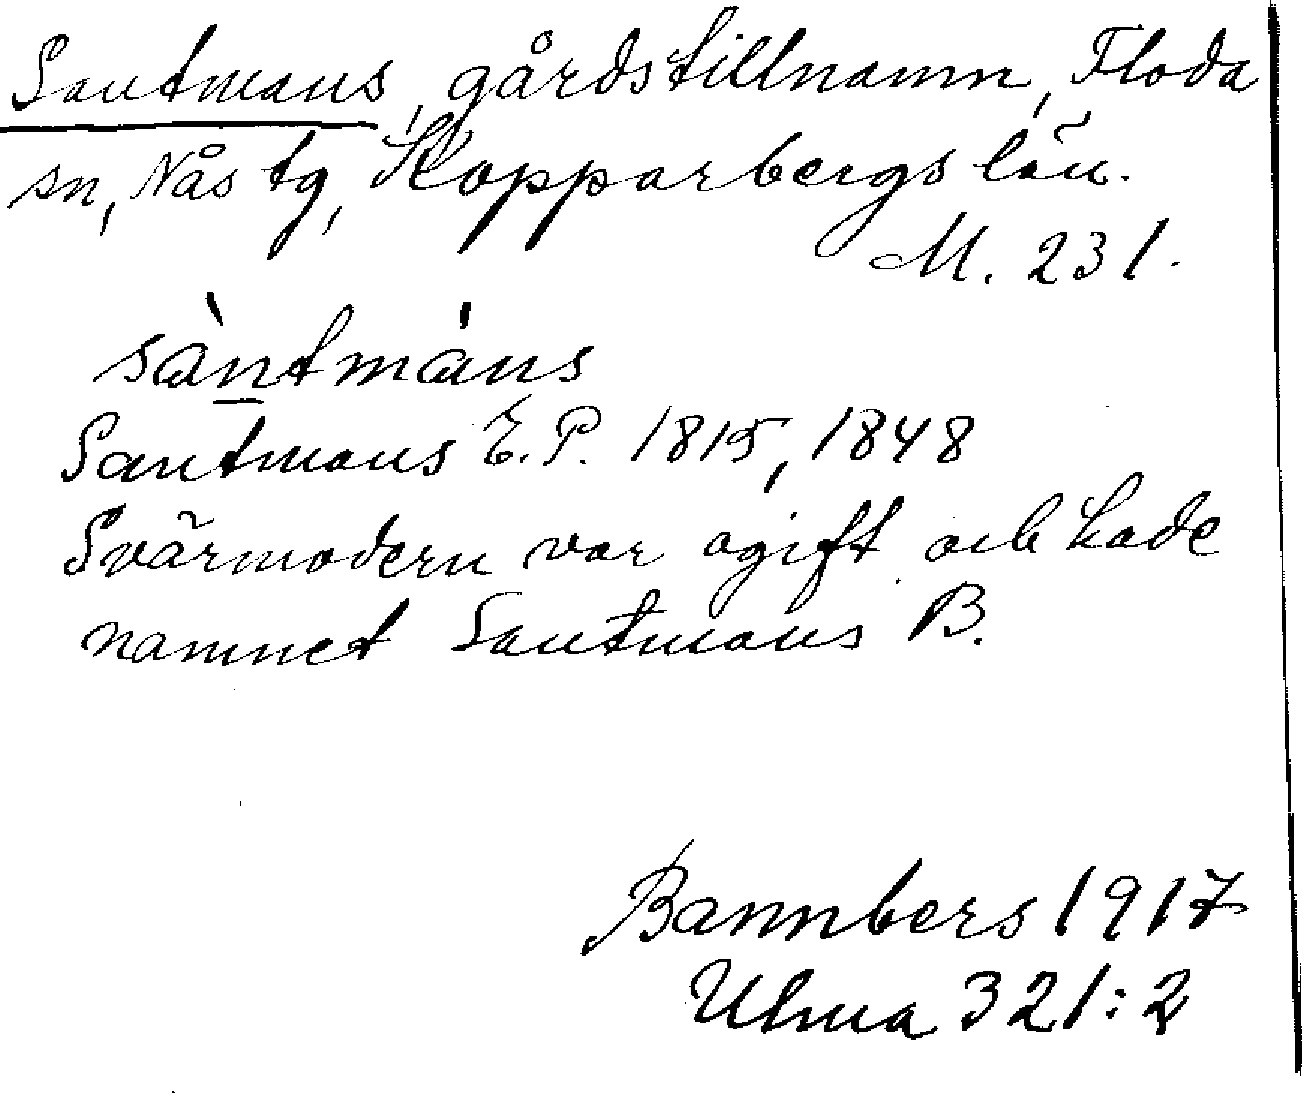 Santmans, gårdstillnamn, Floda
sn, Nås tg, Kopparbergs län.
M. 231.
sàntmáns
Santmans E.P. 1815, 1848
Svärmodern var ogift och hade
namnet Santmans B.
Bannbers 1917
Ulma 321:2